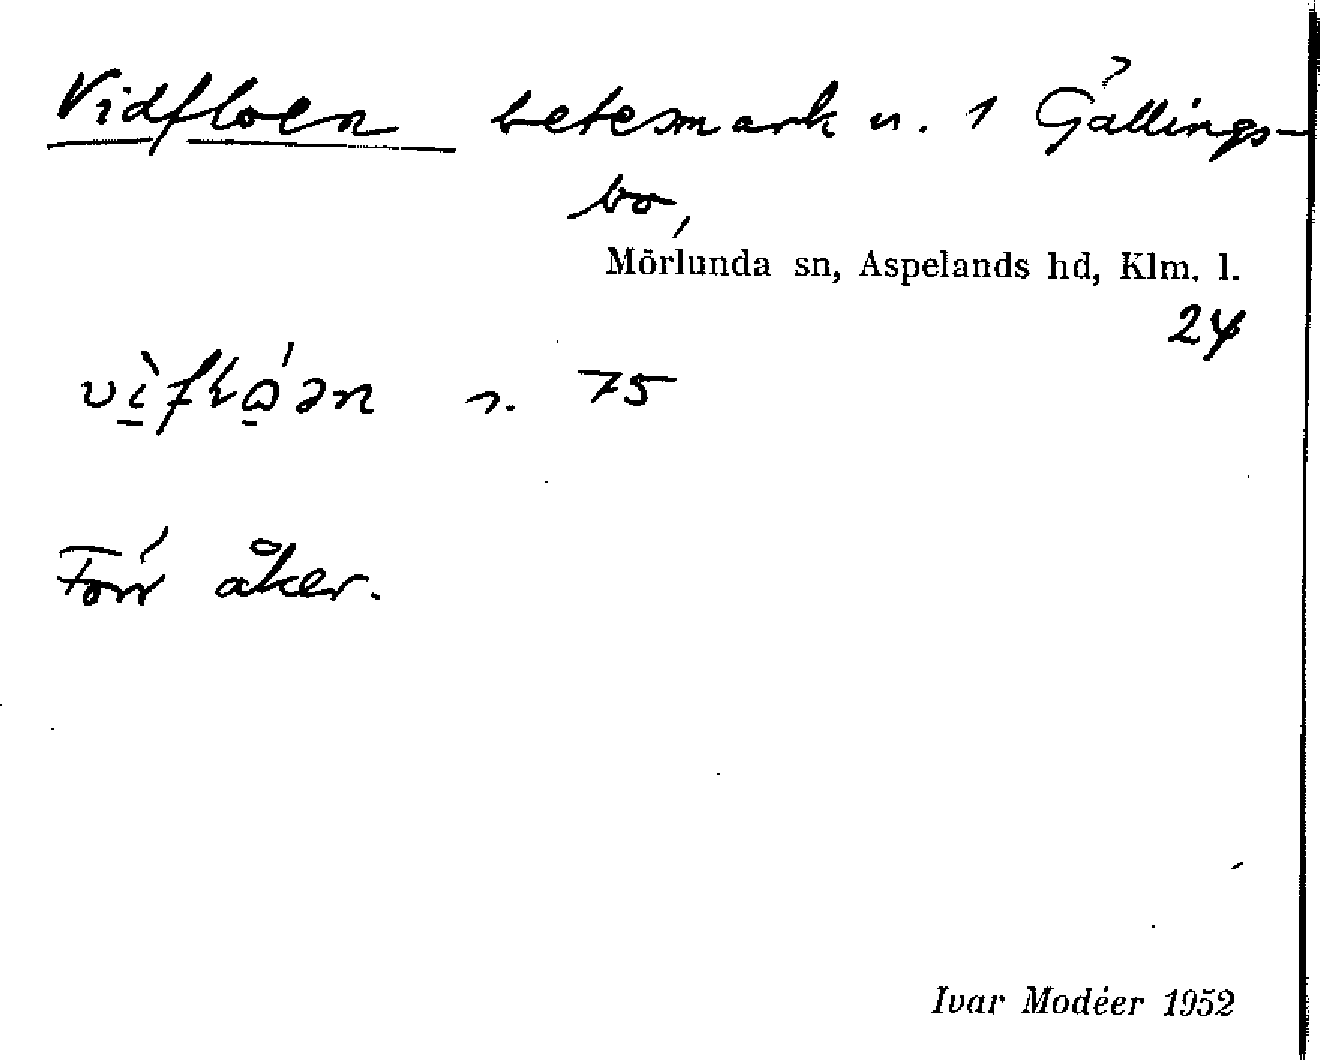 Vidfloen betesmark u. 1 Gållings-
bo,
Mörlunda sn, Aspelands hd, Klm. l.
24
75
Förr åker.
Ivar Modéer 1952